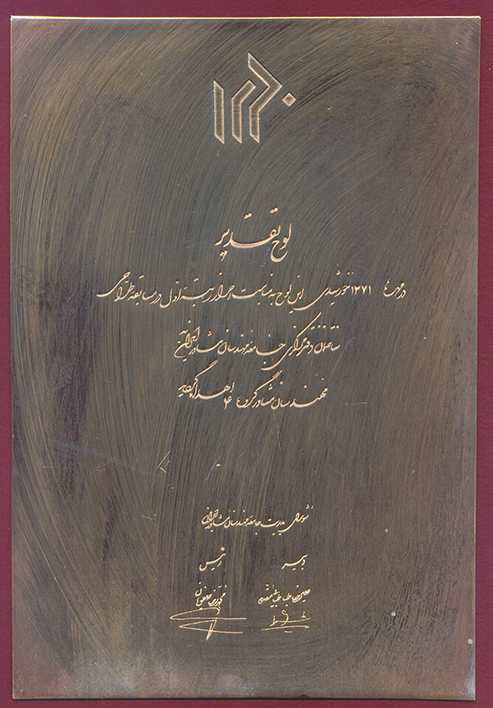 لوح تقدیر
در مهرماه ۱۳۷۱ خورشیدی این لوح به مناسبت احراز رتبه اول در مسابقه طراحی
ساختمان دفتر مرکزی جامعه مهندسان مشاور ایران به
مهندسان مشاور اهدا گردید
شورای مدیریت جامعه مهندسان مشاور ایران
دبیر
رئیس